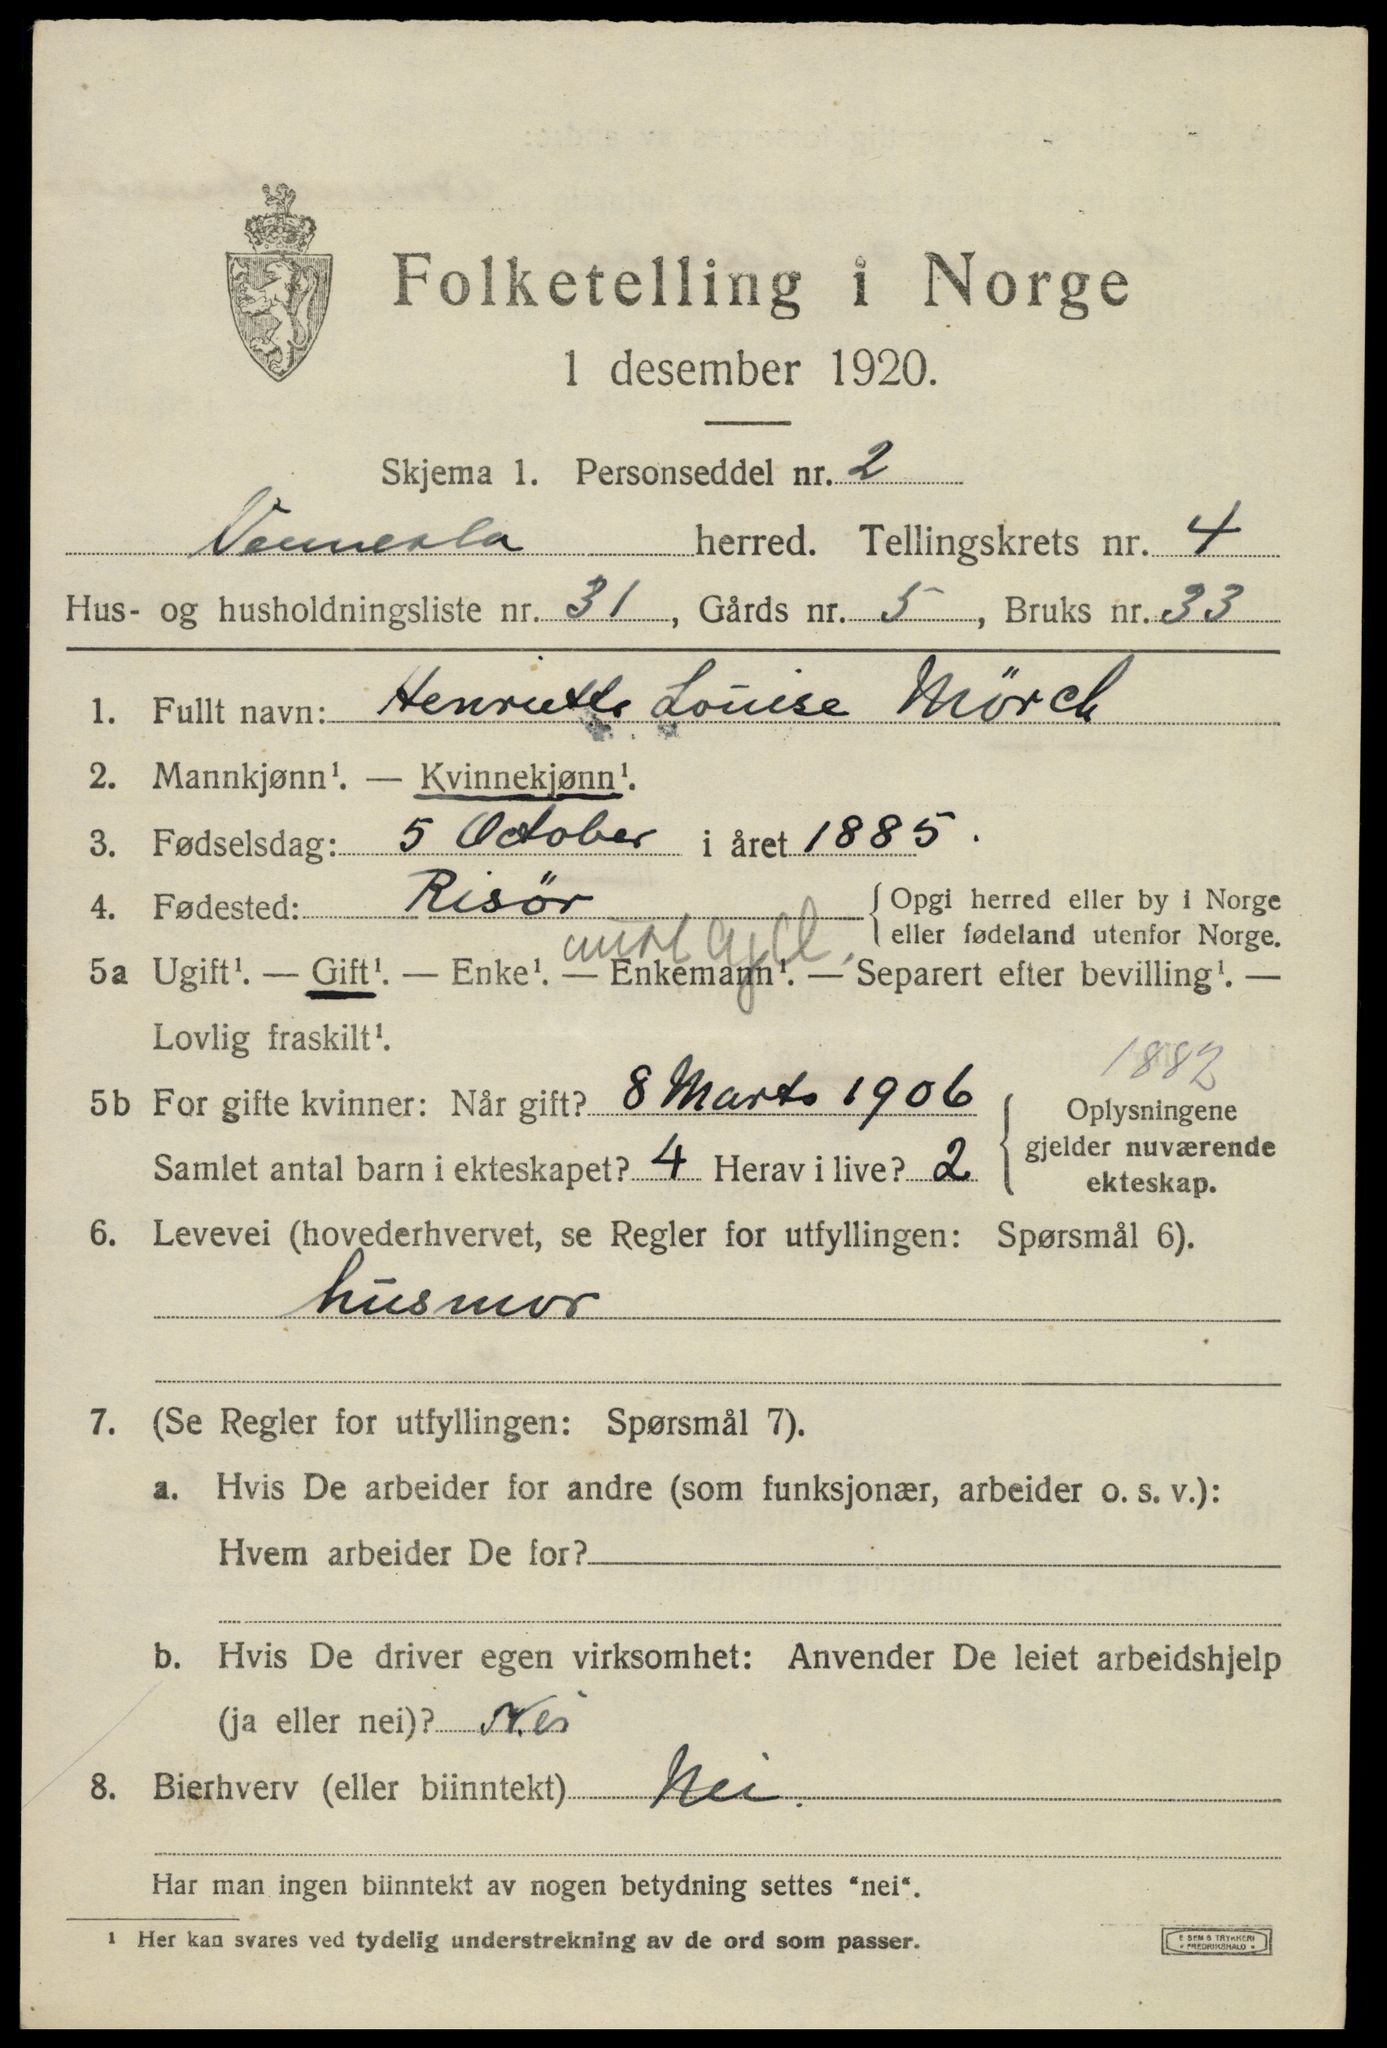 Folketelling i Norge
1 desember 1920.
Skjema 1. Personseddel nr. 2
Vennesla herred. Tellingskrets nr. 4
Hus- og husholdningsliste nr. 31, Gårds nr. 5, Bruks nr. 33
1. Fullt navn: Henriette Louise Mörch
2. Mannkjønn¹. — Kvinnekjønn¹.
3. Fødselsdag: 5 October i året 1885.
4. Fødested: Risör { Opgi herred eller by i Norge
eller fødeland utenfor Norge.
5a Ugift¹. — Gift¹. — Enke¹. — Enkemann¹. — Separert efter bevilling¹. —
Lovlig fraskilt¹.
1882
5b For gifte kvinner: Når gift? 8 Marts 1906 { Oplysningene
gjelder nuværende
Samlet antal barn i ekteskapet? 4 Herav i live? 2
ekteskap.
6. Levevei (hovederhvervet, se Regler for utfyllingen: Spørsmål 6).
husmor
7. (Se Regler for utfyllingen: Spørsmål 7).
a. Hvis De arbeider for andre (som funksjonær, arbeider o. s. v.):
Hvem arbeider De for?
b. Hvis De driver egen virksomhet: Anvender De leiet arbeidshjelp
(ja eller nei)? Nei
8. Bierhverv (eller biinntekt) Nei.
Har man ingen biinntekt av nogen betydning settes "nei".
¹ Her kan svares ved tydelig understrekning av de ord som passer.
E SEMS TRYKKERI
FREDRIKSHALD